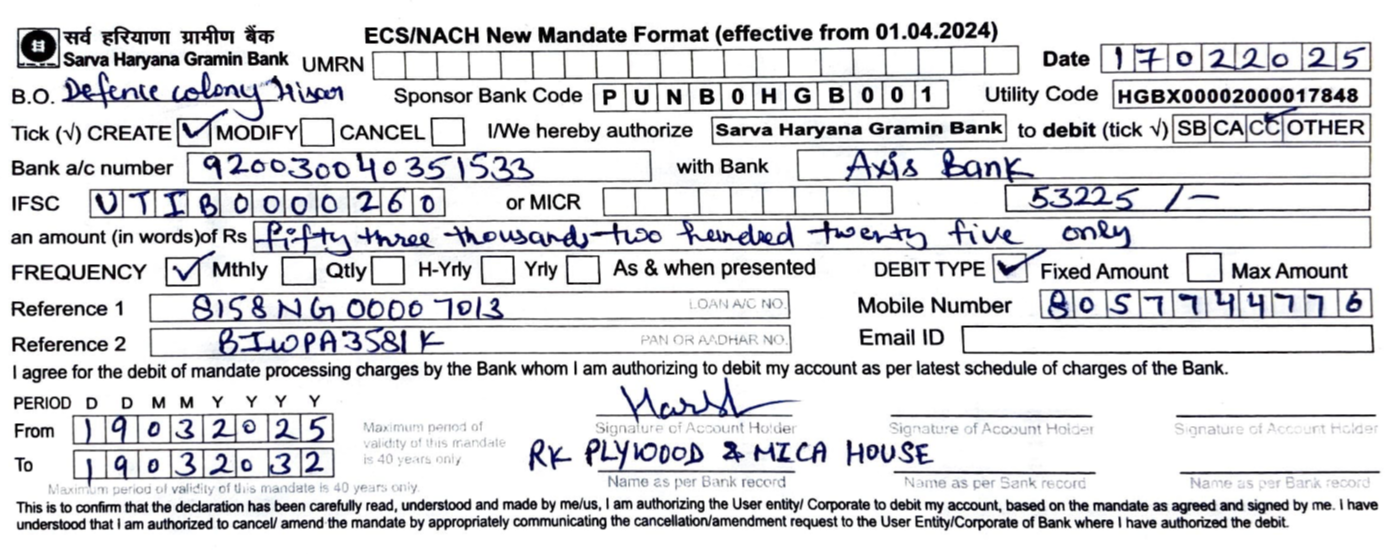 सर्व हरियाणा ग्रामीण बैंक ECS/NACH New Mandate Format (effective from 01.04.2024)
Sarva Haryana Gramin Bank UMRN Date 17022025
B.O. Defence colony Hisar Sponsor Bank Code PUNB0HGB001 Utility Code HGBX00002000017848
Tick (√) CREATE ✓ MODIFY CANCEL I/We hereby authorize Sarva Haryana Gramin Bank to debit (tick √) SB CA CC ✓ OTHER
Bank a/c number 920030040351533 with Bank Axis Bank
IFSC UTIB0000260 or MICR 53225 /-
an amount (in words)of Rs fifty three thousands two hundred twenty five only
FREQUENCY ✓ Mthly Qtly H-Yrly Yrly As & when presented DEBIT TYPE ✓ Fixed Amount Max Amount
Reference 1 8158NG00007013 LOAN A/C NO. Mobile Number 8057744776
Reference 2 BIWPA3581K PAN OR AADHAR NO. Email ID
I agree for the debit of mandate processing charges by the Bank whom I am authorizing to debit my account as per latest schedule of charges of the Bank.
PERIOD D D M M Y Y Y Y
From 19032025 Maximum period of validity of this mandate is 40 years only Harsh
Signature of Account Holder Signature of Account Holder Signature of Account Holder
To 19032032 RK PLYWOOD & MICA HOUSE
Maximum period of validity of this mandate is 40 years only. Name as per Bank record Name as per Bank record Name as per Bank record
This is to confirm that the declaration has been carefully read, understood and made by me/us, I am authorizing the User entity/ Corporate to debit my account, based on the mandate as agreed and signed by me. I have
understood that I am authorized to cancel/ amend the mandate by appropriately communicating the cancellation/amendment request to the User Entity/Corporate of Bank where I have authorized the debit.